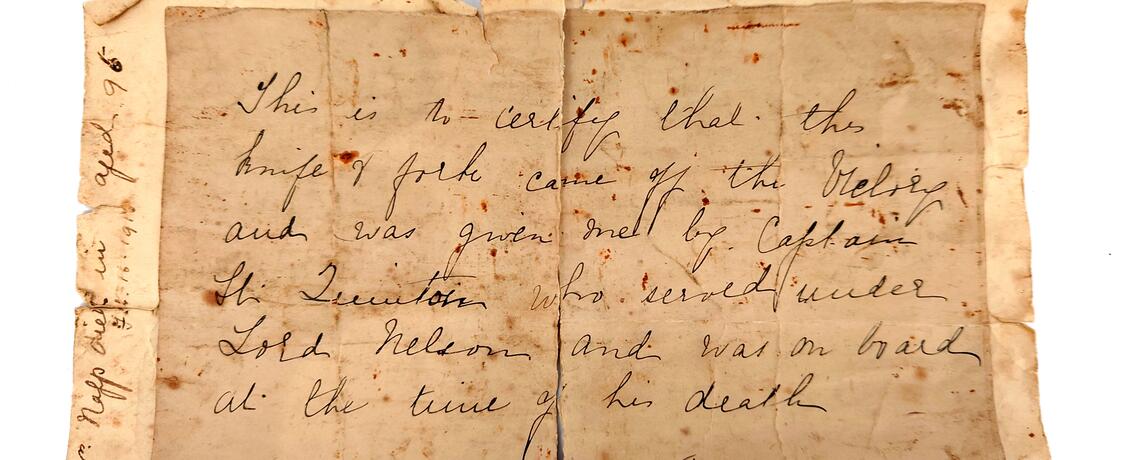 This is to certify that this
knife & fork came off the Victory
and was given me by Captain
St. Quintin who served under
Lord Nelson and was on board
at the time of his death
Napp died in aged 95